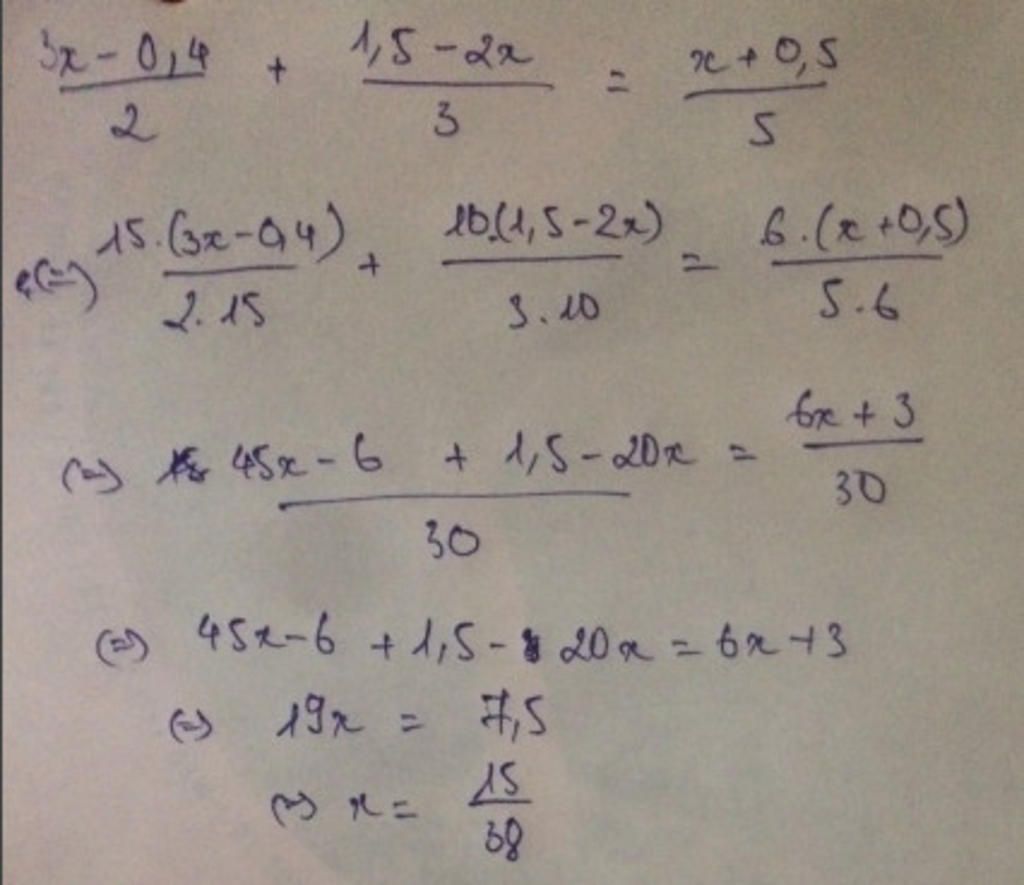 3x - 0,4 / 2 + 1,5 - 2x / 3 = x + 0,5 / 5
(=) 15.(3x - 0,4) / 2.15 + 10.(1,5 - 2x) / 3.10 = 6.(x + 0,5) / 5.6
(=) 45x - 6 + 1,5 - 20x / 30 = 6x + 3 / 30
(=) 45x - 6 + 1,5 - 20x = 6x + 3
(=) 19x = 7,5
(=) x = 15 / 38